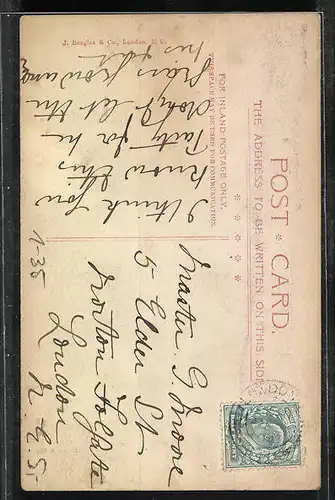 POST CARD.
THE ADDRESS TO BE WRITTEN ON THIS SIDE.
FOR INLAND POSTAGE ONLY,
THIS SPACE MAY BE USED FOR COMMUNICATION.
J. Beagles & Co., London, E. C.
I think you
know this
Party for he
don't let the
Stairs
his
Master G. Moore
5 Elder St
Norton Folgate
London
N. E.
1. 35